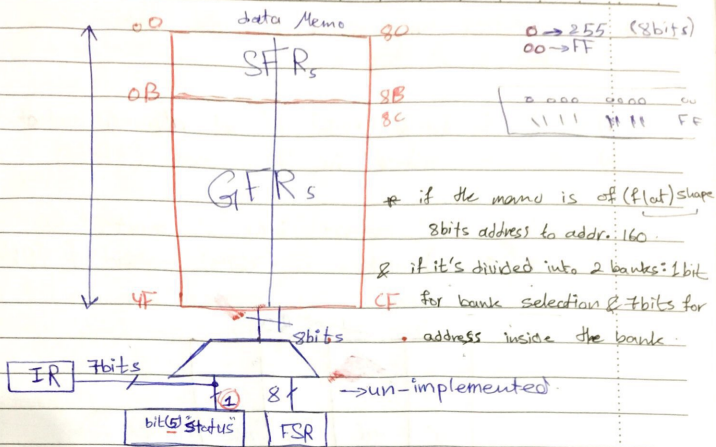 data Memo
00
80
0 → 255 (8bits)
00 → FF
SFRs
0B
8B
8C
0 000 0000 00
1111 1111 FF
GFRs
* if the memo is of (flat) shape
8bits address to addr. 160.
& if it's divided into 2 banks: 1bit
for bank selection & 7bits for
address inside the bank.
4F
CF
8bits
IR
7bits
1
8
→ un-implemented.
bit(5) "status"
FSR